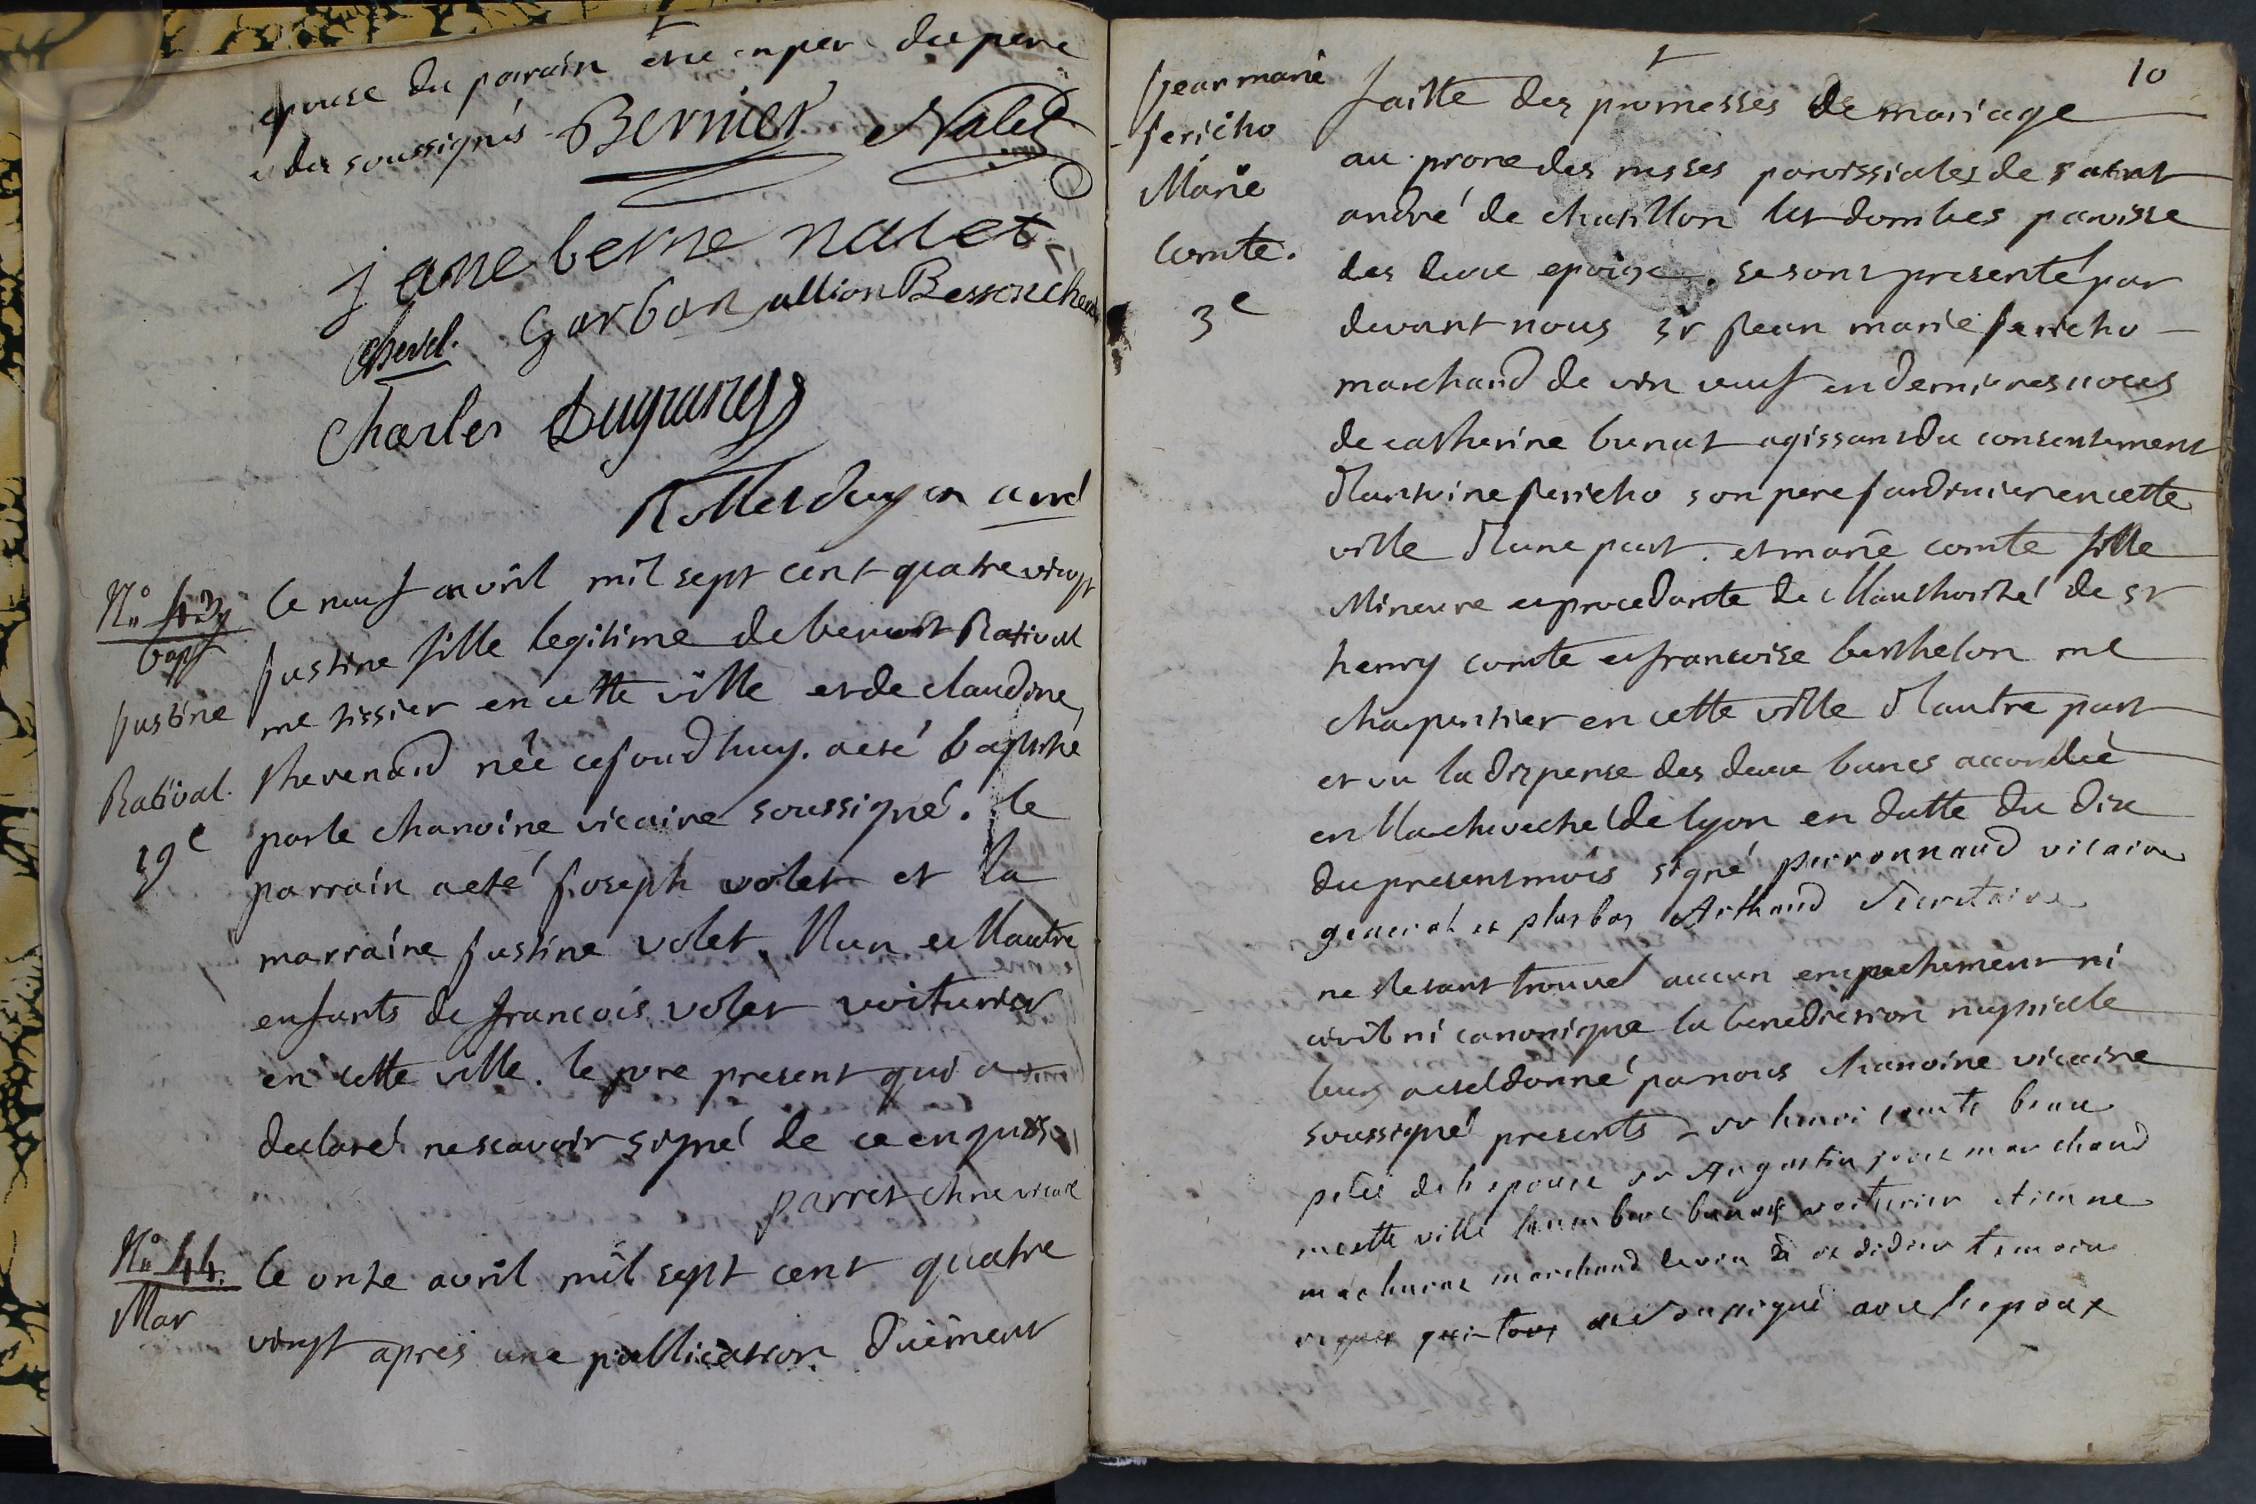 epouse du parrain du pere
des soussignés Bernier Nalet
jane berne nalet
chevl. Garbon allion Besson
Charles Dugraney
Rollet doyen curé
N° 43
bapt
justine
Ratival.
19e
le neuf avril mil sept cent quatre vingt
justine fille legitime de benoit Ratival
me tissier en cette ville et de claudine
thevenard née cejourdhuy. a eté baptisé
par le chanoine vicaire soussigné. le
parrain a eté joseph volet et la
marraine justine volet. l'un et l'autre
enfants de francois volet voiturier
en cette ville. le pere present qui a
declaré ne scavoir signé de ce enquis
parret chne vicaire
N° 44.
Mar
le onze avril mil sept cent quatre
vingt après une publication duëment
10
jean marie
jericho
Marie
comte.
3e
faitte des promesses de mariage
au prone des messes paroissiales de saint
andré de chatillon les dombes paroisse
des deux epoise. se sont presenté par
devant nous sr jean marie jericho
marchand de vin veuf en dernieres noces
de catherine bunat agissant du consentement
d'antoine jericho son pere jardinier en cette
ville d'une part. et marie comte fille
Mineure et procedante de l'authorité de sr
henry comte et francoise berthelon me
charpentier en cette ville d'autre part
et vu la dispense des deux bancs accordée
en l'archeveché de lyon en datte du dix
du present mois signé perronnaud vicaire
general et plus bas Arthaud Secretaire
ne s'etant trouvé aucun empechement ni
civil ni canonique la benediction nuptialle
leur a eté donné par nous chanoine vicaire
soussigné presents sr henri comte beau
pere de l'epouse sr Augustin marchand
en cette ville humbert bunat voiturier etienne
marchand de vin temoins
tous soussigné avec l'epoux